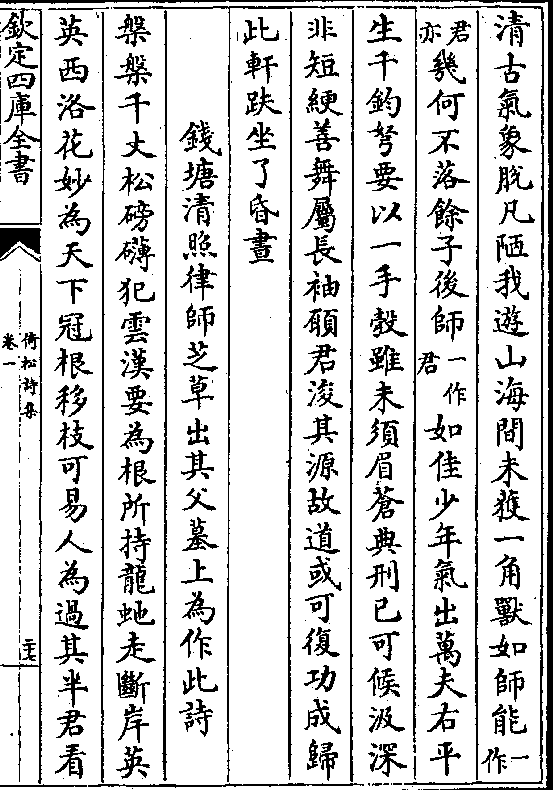 清古氣象脫凡陋我遊山海間未獲一角獸如師能一作
君亦幾何不落餘子後師一作君如佳少年氣出萬夫右平
生千鈞弩要以一手彀雖未須眉蒼典刑已可候汲深
非短綆善舞屬長袖願君浚其源故道或可復功成歸
此軒趺坐了昏晝
錢塘清照律師芝草出其父墓上為作此詩
槃槃千丈松磅礴犯雲漢要為根所持龍虵走斷岸英
英西洛花妙為天下冠根移枝可易人為過其半君看
欽定四庫全書
倚松詩集
卷一
二十七